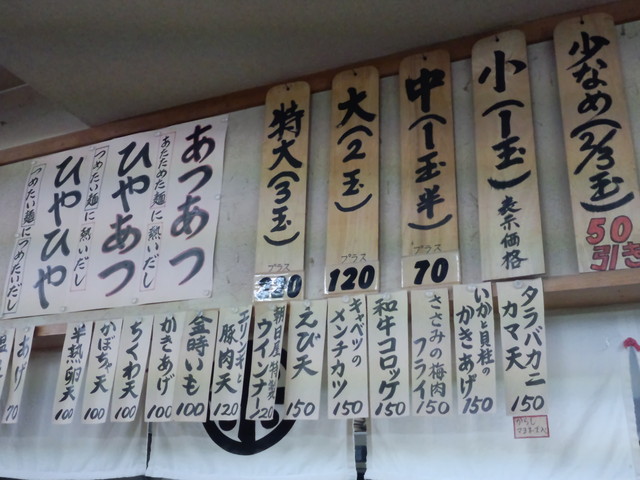 少なめ(2/3玉)
50
引き
小(1玉)
表示価格
中(1玉半)
プラス
70
大(2玉)
プラス
120
特大(3玉)
プラス
あつあつ
あたためた麺に熱いだし
ひやあつ
つめたい麺に熱いだし
ひやひや
つめたい麺につめたいだし
タラバカニ
カマ天
150
からし
マヨネーズ入り
いかと貝柱の
かきあげ
150
ささみの梅肉
フライ
150
和牛コロッケ
150
キャベツの
メンチカツ
150
えび天
150
朝日屋特製
ウインナー
120
エリンギと
豚肉天
120
金時いも
100
かきあげ
100
ちくわ天
100
かぼちゃ天
100
半熟卵天
100
あげ
70